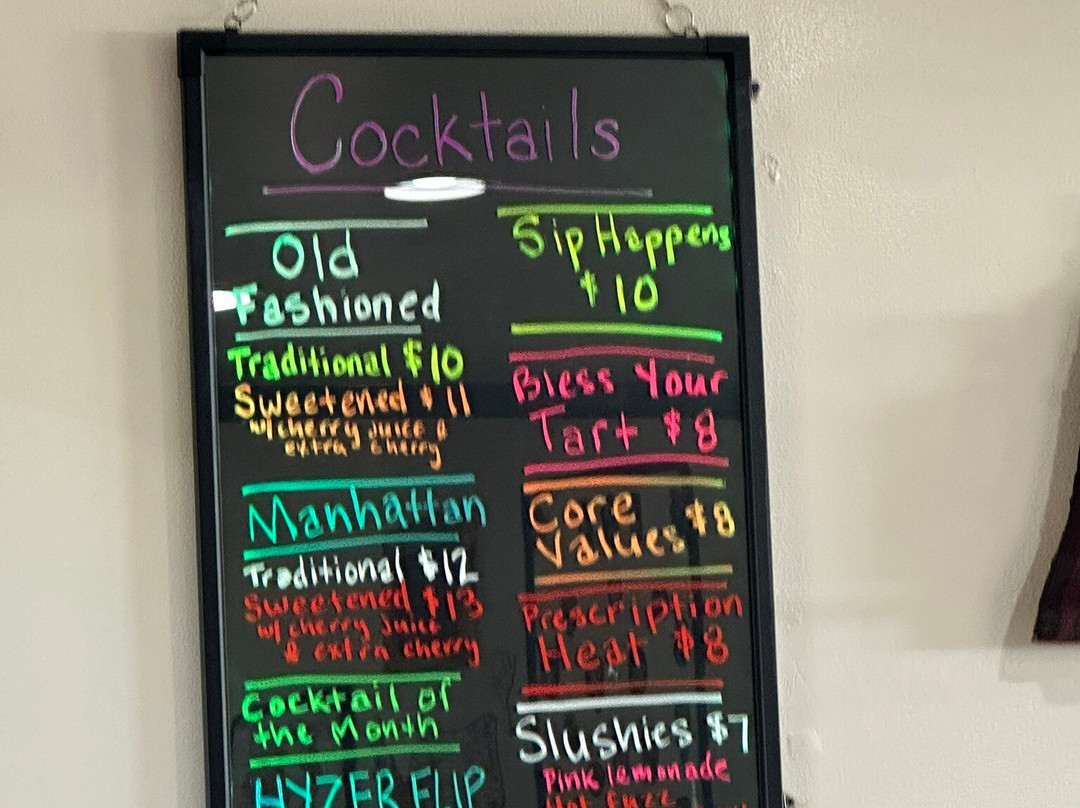 Cocktails
Old
Fashioned
Traditional $10
Sweetened $11
w/cherry juice &
extra cherry
Manhattan
Traditional $12
Sweetened $13
w/ cherry juice
& extra cherry
Cocktail of
the Month
HYZER FLIP
Sip Happens
$10
Bless Your
Tart $8
Core
Values $8
Prescription
Heat $8
Slushies $7
Pink lemonade
Hot Fuzz